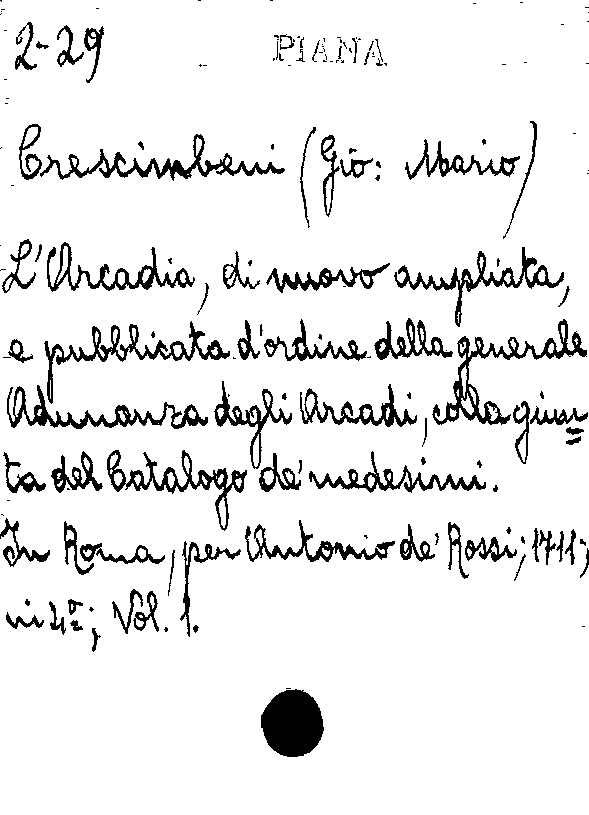 2-29 PIANA
Crescimbeni (Gio: Mario)
L'Arcadia, di nuovo ampliata,
e pubblicata d'ordine della generale
Adunanza degli Arcadi, colla giun=
ta del Catalogo de' medesimi.
In Roma, per Antonio de' Rossi; 1711;
in 4º; Vol. 1.